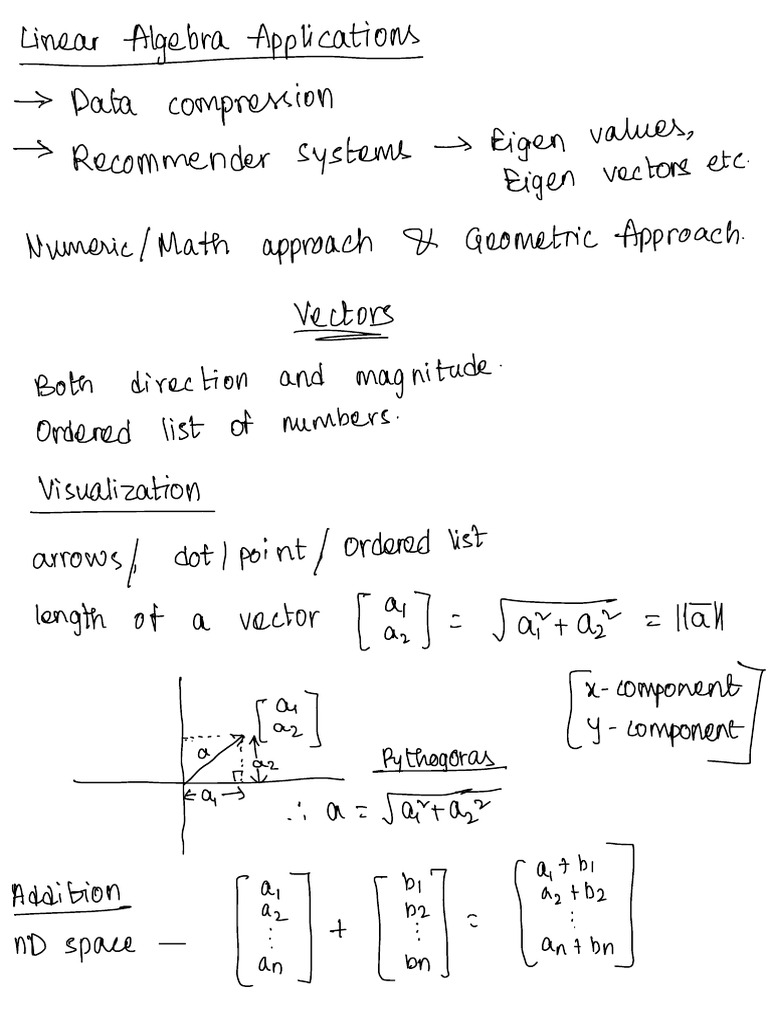 Linear Algebra Applications
→ Data compression
→ Recommender systems → Eigen values,
Eigen vectors etc.
Numeric/Math approach & Geometric Approach.
Vectors
Both direction and magnitude.
Ordered list of numbers.
Visualization
arrows/, dot/point/ordered list
length of a vector [a₁ a₂] = √a₁² + a₂² = ||a̅||
[x-component
y-component]
[a₁
a₂]
a
a₂
a₁
Pythegoras
∴ a = √a₁² + a₂²
Addition
nD space — [a₁ a₂ ⋮ an] + [b₁ b₂ ⋮ bn] = [a₁ + b₁ a₂ + b₂ ⋮ an + bn]